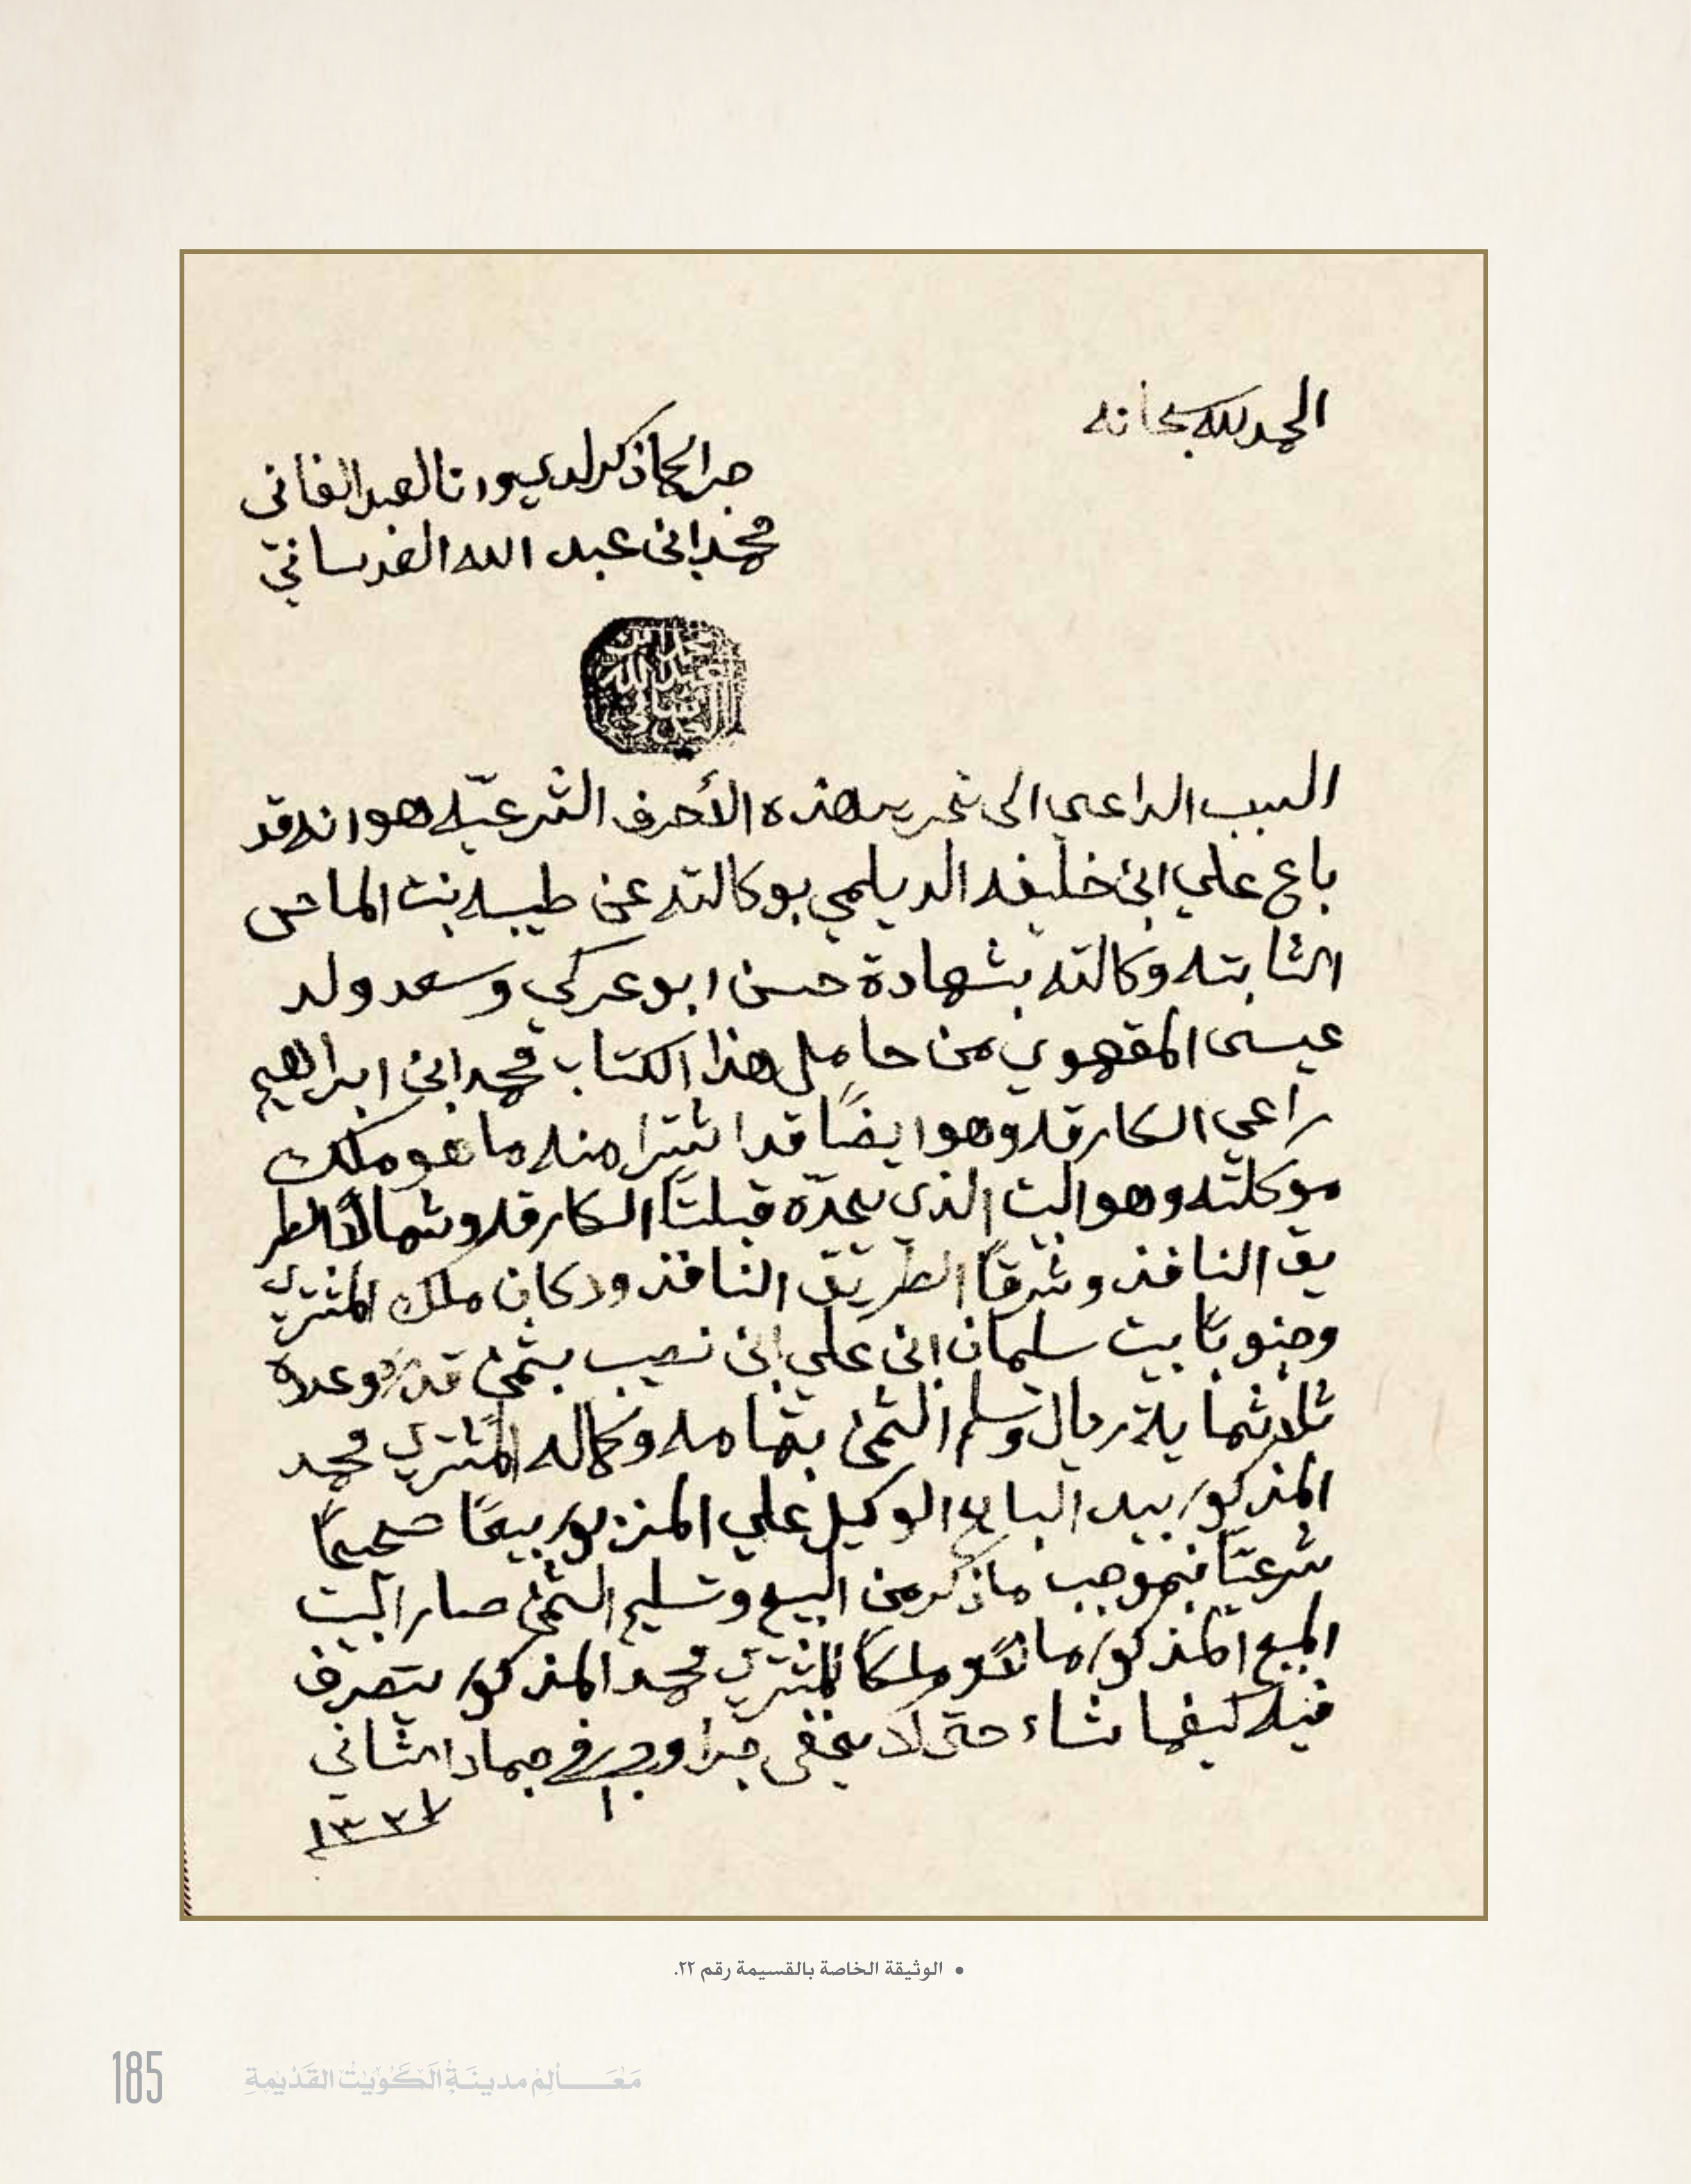 الحمد لله سبحانه
جرا لحما ذكر لدي وانا العبد الفاني
محمد ابن عبد الله العدساني
محمد ابن
عبد الله
العدساني
السبب الداعي الى تحرير هذه الأحرف الشرعيّه هو انه قد
باع علي ابن خليفه الديلمي بوكالته عن طيبه بنت الماص
الثابته وكالته بشهادة حسن ابو عركي وسعد ولد
عيسى المقهوي من حامل هذا الكتاب محمد ابن ابراهيم
راعي الكارقه وهو ايضًا قد اشترا منه ما هو ملك
موكلته وهو البيت الذي يحدّه قبلتًا الكارقه وشمالاً الطر
يق النافذ وشرقًا الطريق النافذ ودكان ملك المشتري
وجنوبًا بيت سليمان ابن علي ابن نصيب بثمن قدره وعدده
ثلاثماية ريال وسلم الثمن بتمامه وكماله المشتري محمد
المذكور بيد البايع الوكيل علي المزبور بيعًا صحيحًا
شرعيًّا فبموجب ما ذكر من البيع وتسليم الثمن صار البيت
المبيع المذكور مالاً وملكًا للمشتري محمد المذكور يتصرف
فيه كيفما شاء حتى لا يخفى جرا وحرر في جمادا الثاني
١٠
١٣٣٧
• الوثيقة الخاصة بالقسيمة رقم ٢٢.
185 مَعَالِم مدينَةِ الكُوَيْت القَدْيمةِ